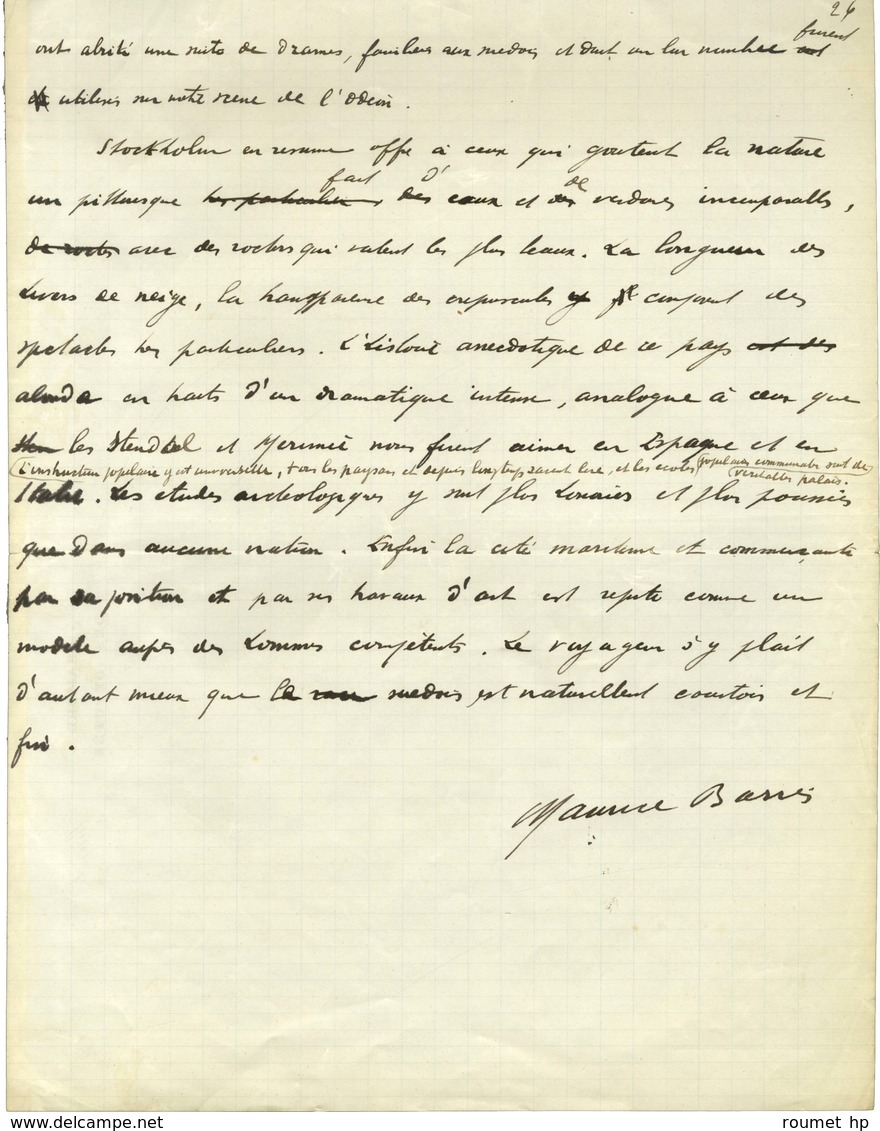 26
ont abrité une suite de drames, familiers aux suedois et dont un bon nombre furent
utilisés sur notre scene de l'Odéon.
Stockholm en resume offre à ceux qui goutent la nature
un pittoresque fait d'eaux et de verdures incomparables,
avec des rochers qui valent les plus beaux. La longueur des
hivers de neige, la transparence des crepuscules y composent des
spectacles tres particuliers. L'histoire anecdotique de ce pays
abonde en traits d'un dramatique intense, analogue à ceux que
les Stendhal et Merimée nous firent aimer en Espagne et en
L'instruction populaire y est universelle, tous les paysans et depuis longtemps savent lire, et les ecoles populaires communales sont de
veritables palais.
Italie. Les etudes archeologiques y sont plus honorées et plus poussées
que dans aucune nation. Enfin la cité maritime et commerçante
par sa position et par ses travaux d'art est reputé comme un
modele aupres des hommes compétents. Le voyageur s'y plait
d'autant mieux que le suedois est naturellent courtois et
fin.
Maurice Barrès
roumet hp